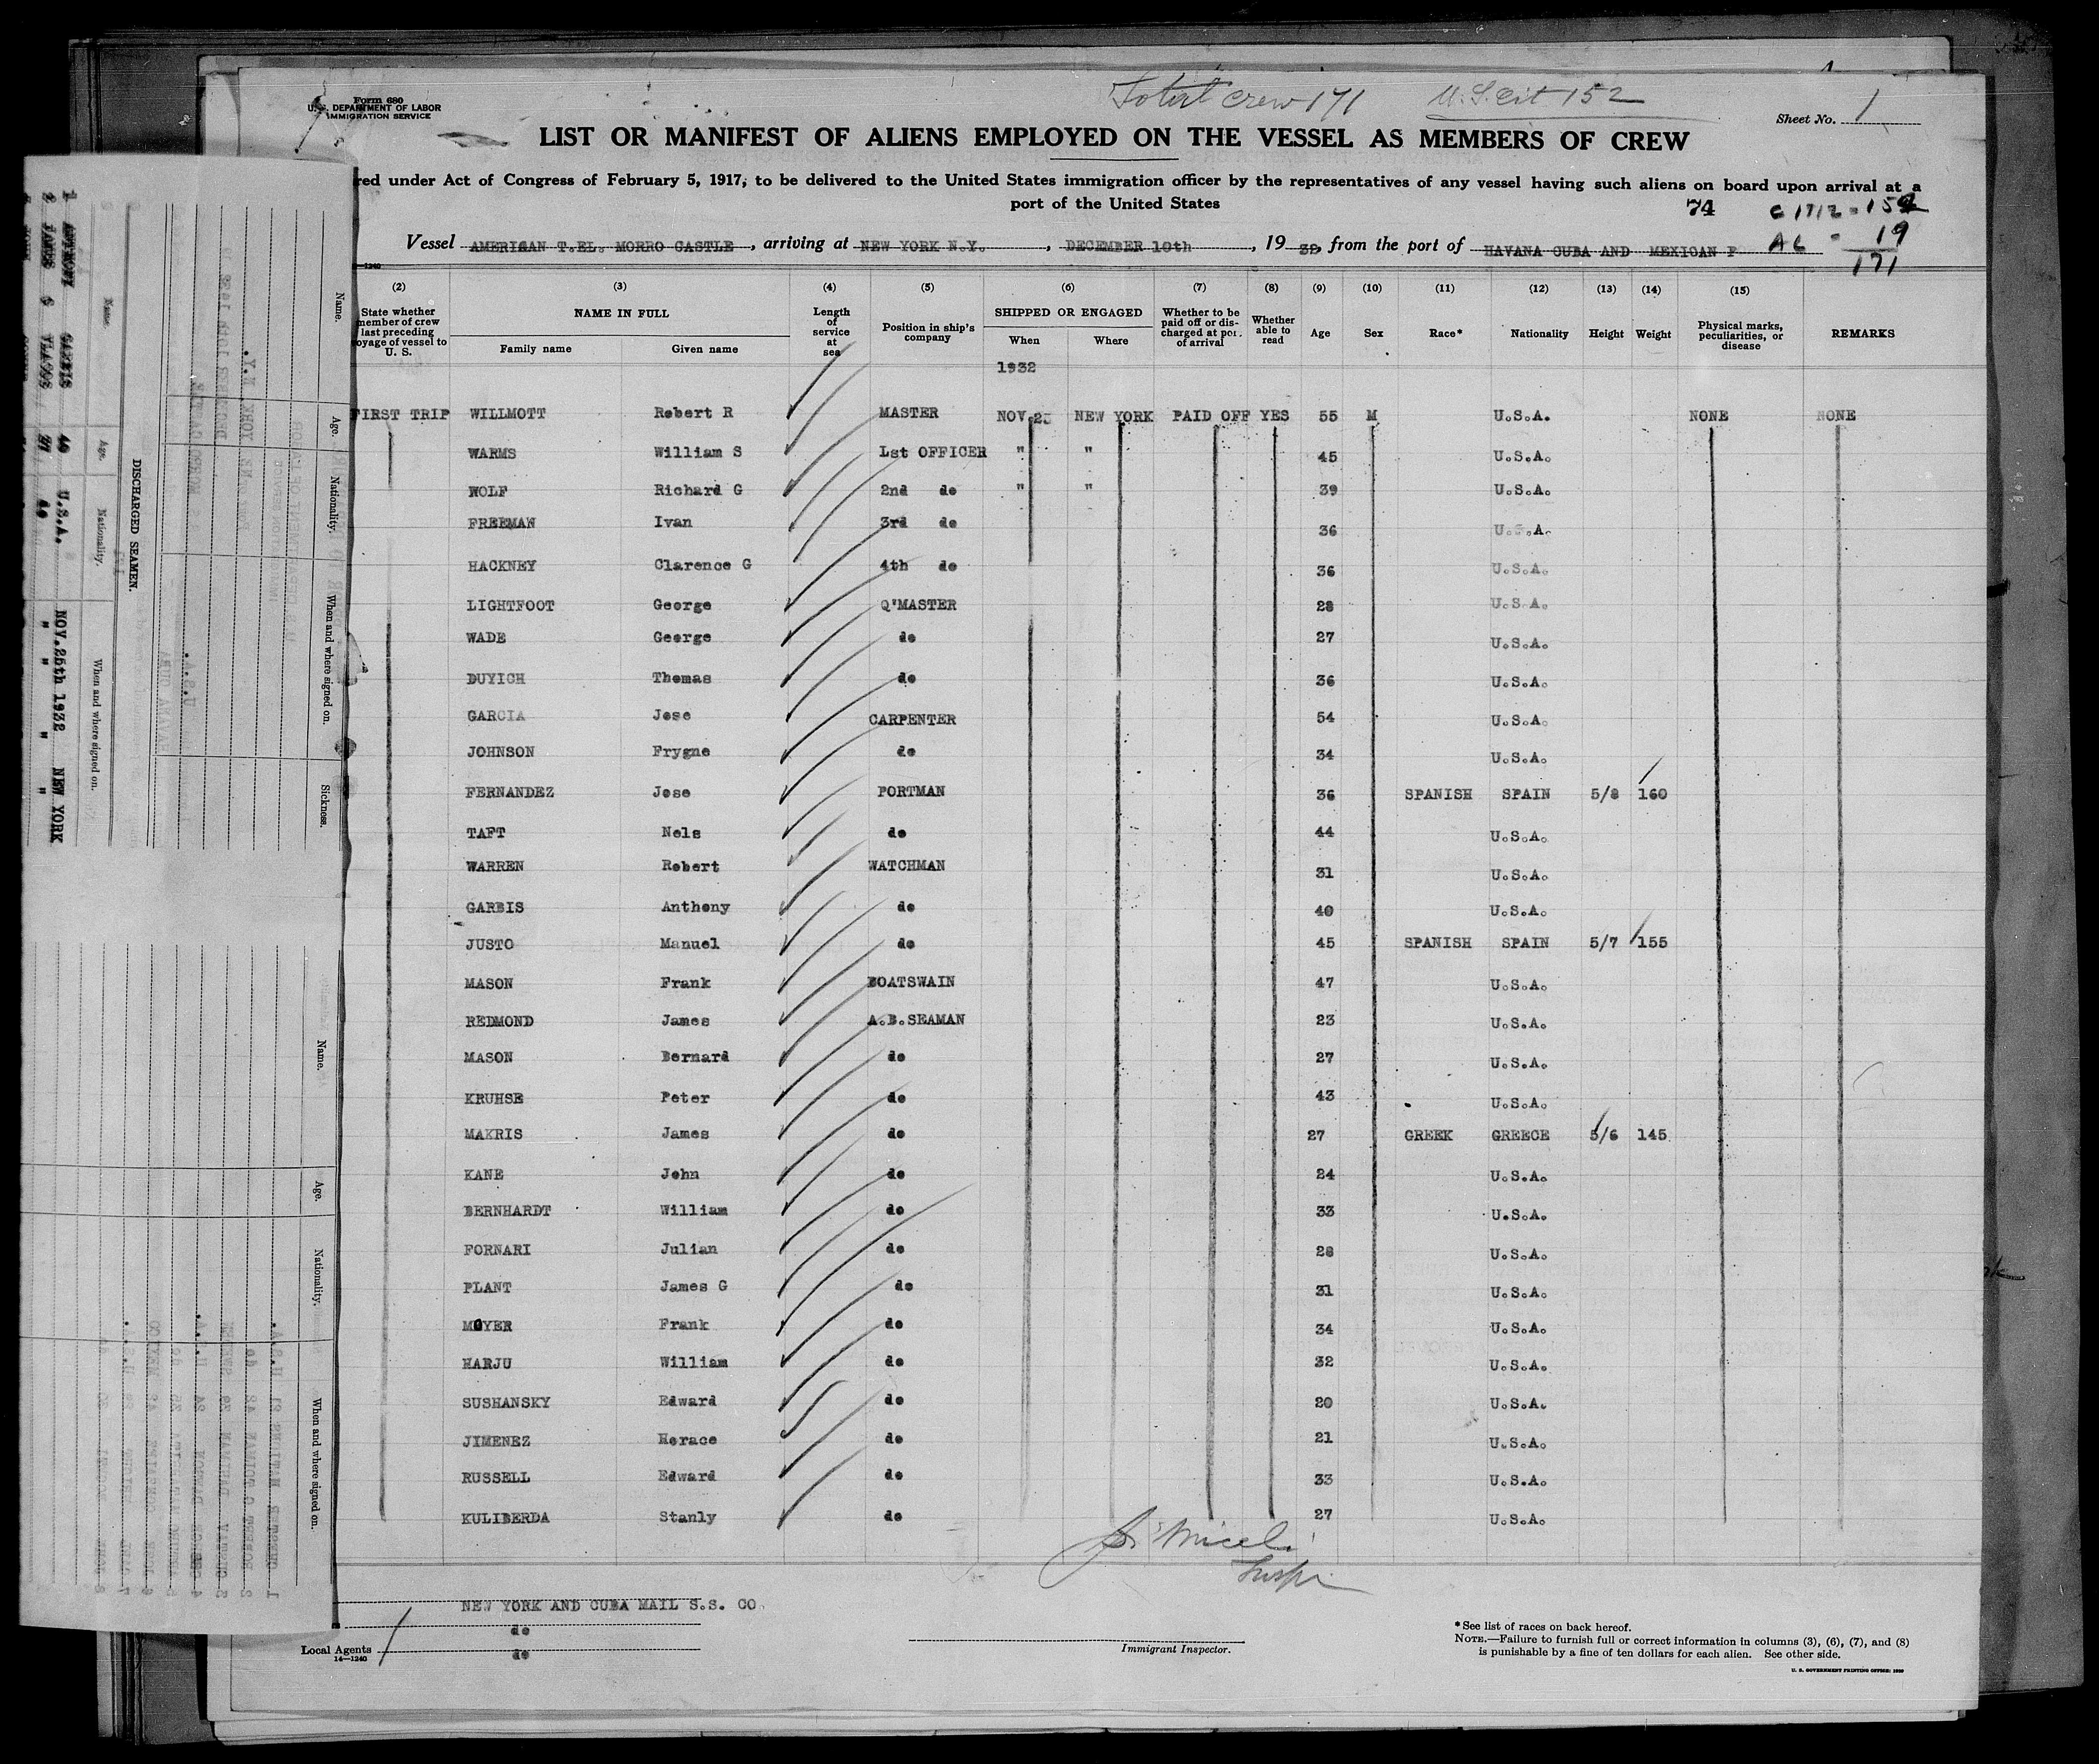 Total Crew 171 U.S. Cit 152
Form 680
U.S. DEPARTMENT OF LABOR
IMMIGRATION SERVICE
Sheet No. 1
LIST OR MANIFEST OF ALIENS EMPLOYED ON THE VESSEL AS MEMBERS OF CREW
red under Act of Congress of February 5, 1917, to be delivered to the United States immigration officer by the representatives of any vessel having such aliens on board upon arrival at a
port of the United States
74
AL = 19
171
Vessel AMERICAN T.EL. MORRO CASTLE, arriving at NEW YORK N.Y., DECEMBER 10th, 19 32, from the port of HAVANA CUBA AND MEXICAN P
(2) (3) (4) (5) (6) (7) (8) (9) (10) (11) (12) (13) (14) (15)
State whether member of crew last preceding voyage of vessel to U. S.
NAME IN FULL
Family name Given name
Length of service at sea
Position in ship's company
SHIPPED OR ENGAGED
When Where
Whether to be paid off or discharged at port of arrival
Whether able to read
Age Sex Race* Nationality Height Weight
Physical marks, peculiarities, or disease
REMARKS
1932
FIRST TRIP WILLMOTT Robert R MASTER NOV 25 NEW YORK PAID OFF YES 55 M U.S.A. NONE NONE
WARMS William S Lst OFFICER " " 45 U.S.A.
WOLF Richard G 2nd do " " 39 U.S.A.
FREEMAN Ivan 3rd do 36 U.S.A.
HACKNEY Clarence G 4th do 36 U.S.A.
LIGHTFOOT George Q'MASTER 28 U.S.A.
WADE George do 27 U.S.A.
DUYICH Thomas do 36 U.S.A.
GARCIA Jose CARPENTER 54 U.S.A.
JOHNSON Frygne do 34 U.S.A.
FERNANDEZ Jose PORTMAN 36 SPANISH SPAIN 5/8 160
TAFT Nels do 44 U.S.A.
WARREN Robert WATCHMAN 31 U.S.A.
GARBIS Anthony do 40 U.S.A.
JUSTO Manuel do 45 SPANISH SPAIN 5/7 155
MASON Frank BOATSWAIN 47 U.S.A.
REDMOND James A.B.SEAMAN 23 U.S.A.
MASON Bernard do 27 U.S.A.
KRUHSE Peter do 43 U.S.A.
MAKRIS James do 27 GREEK GREECE 5/6 145
KANE John do 24 U.S.A.
BERNHARDT William do 33 U.S.A.
FORNARI Julian do 28 U.S.A.
PLANT James G do 31 U.S.A.
MOYER Frank do 34 U.S.A.
HARJU William do 32 U.S.A.
SUSHANSKY Edward do 20 U.S.A.
JIMENEZ Horace do 21 U.S.A.
RUSSELL Edward do 33 U.S.A.
KULIBERDA Stanly do 27 U.S.A.
NEW YORK AND CUBA MAIL S.S. CO
do
Local Agents do
14—1240
Immigrant Inspector.
* See list of races on back hereof.
NOTE.—Failure to furnish full or correct information in columns (3), (6), (7), and (8)
is punishable by a fine of ten dollars for each alien. See other side.
U. S. GOVERNMENT PRINTING OFFICE:
DISCHARGED SEAMEN.
Name. Age. Nationality. When and where signed on.
U.S.A. NOV.26th 1932 NEW YORK
Name. Age. Nationality. When and where signed on. Sickness.
Name. Age. Nationality. When and where signed on.